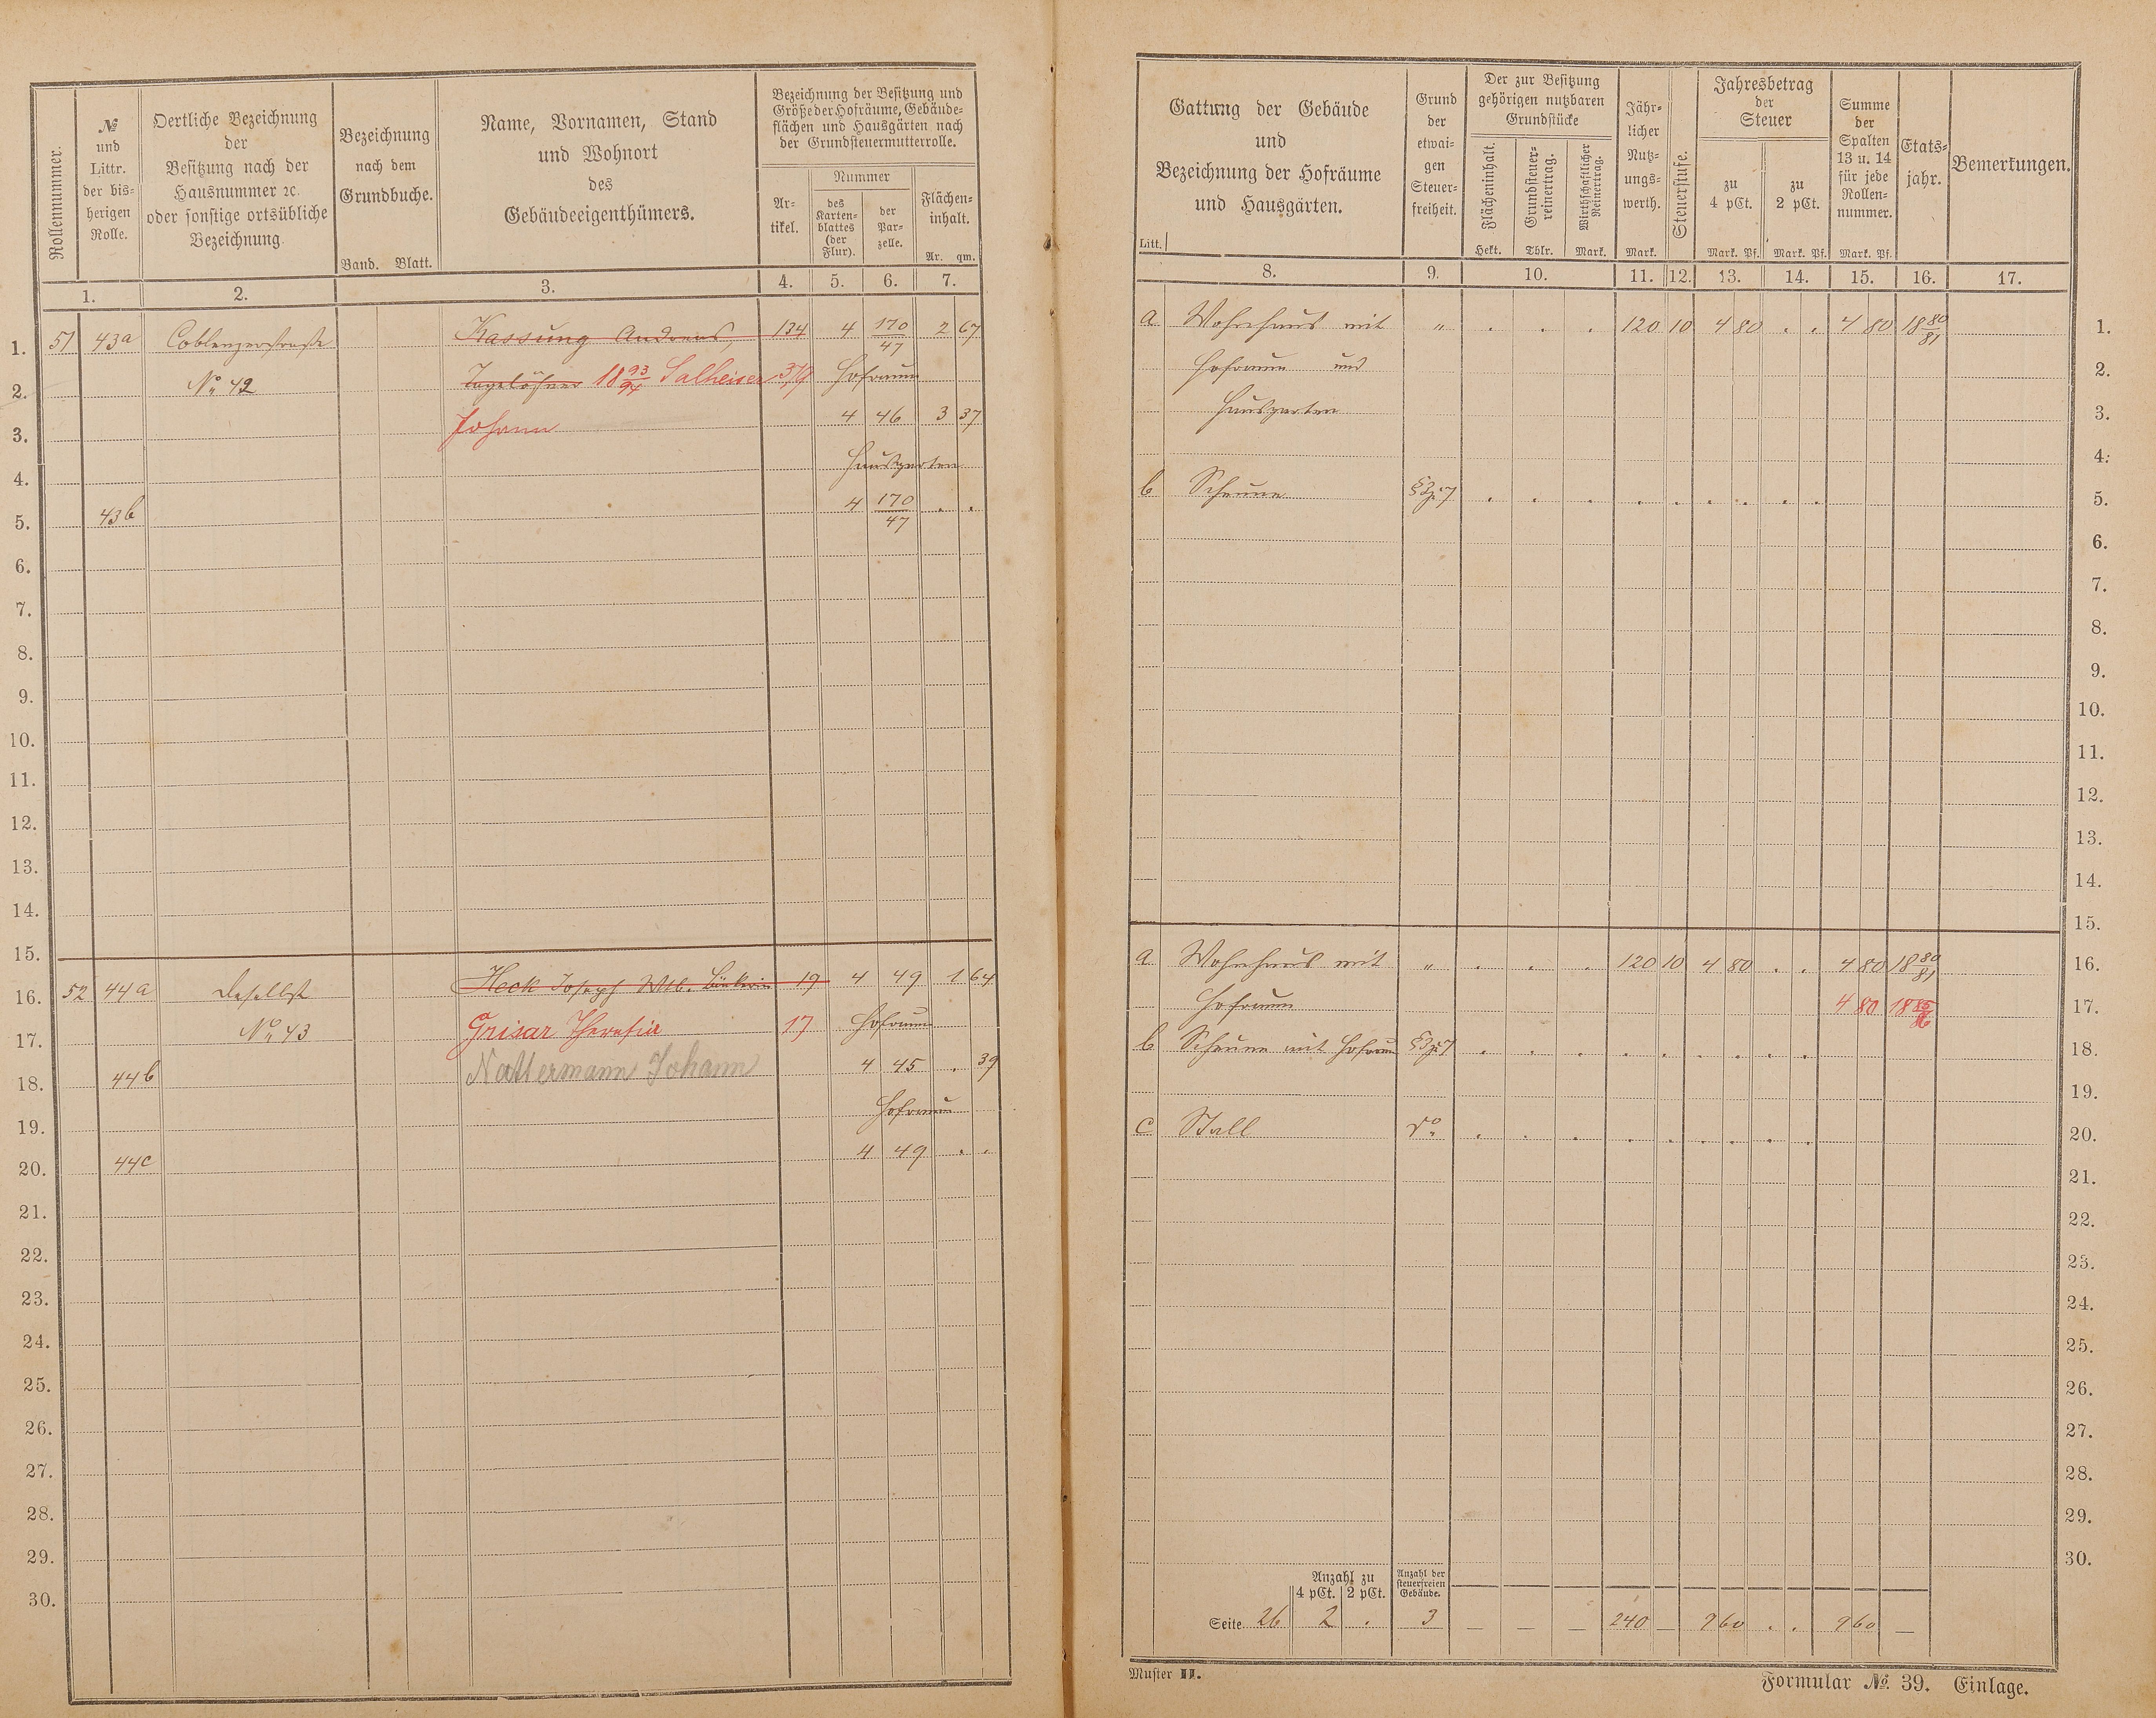 Rollennummer.
№ und Littr. der bis- herigen Rolle.
Oertliche Bezeichnung der Besitzung nach der Hausnummer ꝛc. oder sonstige ortsübliche Bezeichnung.
Bezeichnung nach dem Grundbuche.
Band. Blatt.
Name, Vornamen, Stand und Wohnort des Gebäudeeigenthümers.
Bezeichnung der Besitzung und Größe der Hofräume, Gebäude- flächen und Hausgärten nach der Grundsteuermutterrolle.
Ar- tikel.
Nummer
des Karten- blattes (der Flur).
der Par- zelle.
Flächen- inhalt.
Ar. qm.
1. 2. 3. 4. 5. 6. 7.
1. 51 43a Coblenzerstraße Kassung Andreas, 134 4 170/47 2 67
2. № 42 Tagelöhner 18 93/94 Salheiser Hofraum
3. Johann 4 46 3 37
4. Hausgarten
5. 43b 4 170/47 . .
6.
7.
8.
9.
10.
11.
12.
13.
14.
15.
16. 52 44a Daselbst Heck Joseph Wtb. 19 4 49 1 64
17. № 43 Grisar Theresia 17 Hofraum
18. 44b Nattermann Johann 4 45 . 39
19. Hofraum
20. 44c 4 49 . .
21.
22.
23.
24.
25.
26.
27.
28.
29.
30.
Gattung der Gebäude und Bezeichnung der Hofräume und Hausgärten.
Litt.
Grund der etwai- gen Steuer- freiheit.
Der zur Besitzung gehörigen nutzbaren Grundstücke
Flächeninhalt. Hekt.
Grundsteuer- reinertrag. Thlr.
Wirthschaftlicher Reinertrag. Mark.
Jähr- licher Nutz- ungs- werth. Mark.
Steuerstufe.
Jahresbetrag der Steuer
zu 4 pCt. Mark. Pf.
zu 2 pCt. Mark. Pf.
Summe der Spalten 13 u. 14 für jede Rollen- nummer. Mark. Pf.
Etats- jahr.
Bemerkungen.
8. 9. 10. 11. 12. 13. 14. 15. 16. 17.
a Wohnhaus mit " . . . 120 10 4 80 . . 4 80 18 80/81 1.
Hofraum und 2.
Hausgarten 3.
4.
b Scheune §3z:7 . . . . . . . . . 5.
6.
7.
8.
9.
10.
11.
12.
13.
14.
15.
a Wohnhaus mit " . . . 120 10 4 80 . . 4 80 18 80/81 16.
Hofraum 4 80 18 85/86 17.
b Scheune mit Hofraum §3z:7 . . . . . . . . . 18.
19.
c Stall do . . . . . . . . . 20.
21.
22.
23.
24.
25.
26.
27.
28.
29.
30.
Anzahl zu 4 pCt. 2 pCt.
Anzahl der steuerfreien Gebäude.
Seite 26 2 . 3 — — — 240 — 9 60 . . 9 60 —
Muster II.
Formular № 39. Einlage.